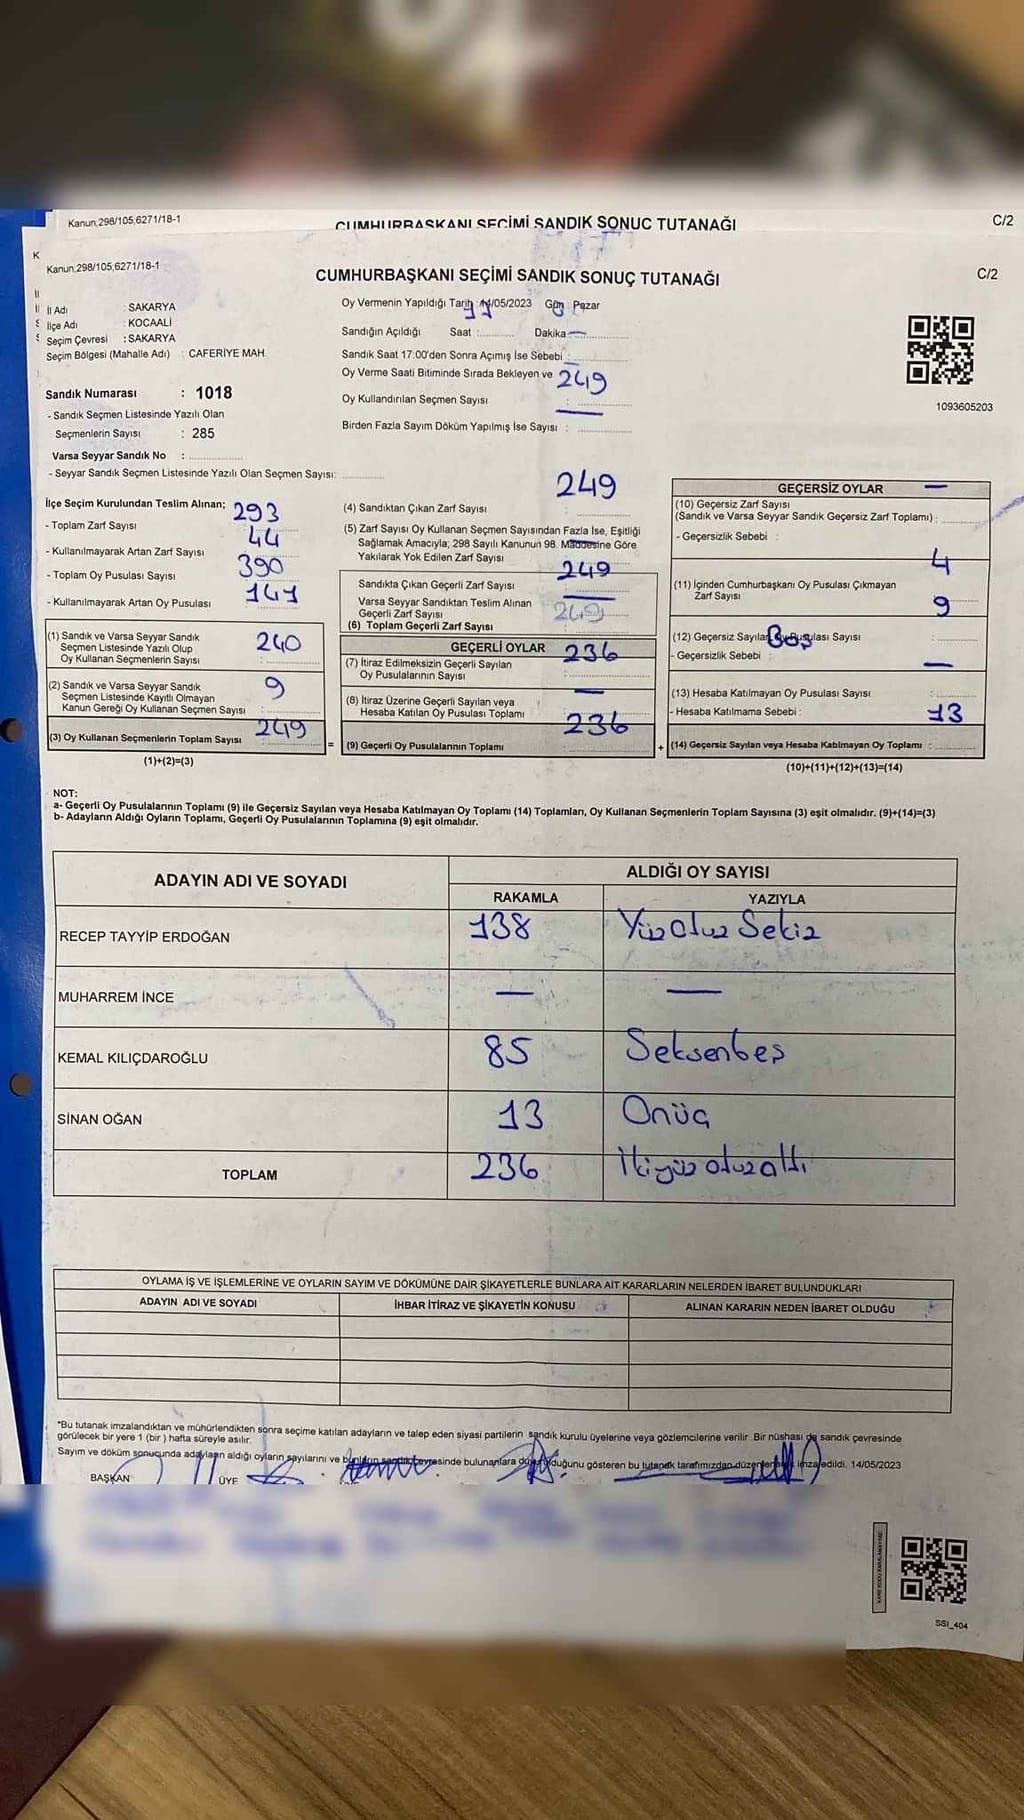 Kanun;298/105,6271/18-1
CUMHURBAŞKANI SEÇİMİ SANDIK SONUÇ TUTANAĞI
C/2
Kanun,298/105,6271/18-1
C/2
CUMHURBAŞKANI SEÇİMİ SANDIK SONUÇ TUTANAĞI
İl Adı : SAKARYA
İlçe Adı : KOCAALİ
Seçim Çevresi : SAKARYA
Seçim Bölgesi (Mahalle Adı) : CAFERİYE MAH.
Sandık Numarası : 1018
- Sandık Seçmen Listesinde Yazılı Olan
Seçmenlerin Sayısı : 285
Varsa Seyyar Sandık No :
- Seyyar Sandık Seçmen Listesinde Yazılı Olan Seçmen Sayısı:
Oy Vermenin Yapıldığı Tarih : 14/05/2023 Gün : Pazar
Sandığın Açıldığı Saat : Dakika
Sandık Saat 17:00'den Sonra Açımış İse Sebebi :
Oy Verme Saati Bitiminde Sırada Bekleyen ve
249
Oy Kullandırılan Seçmen Sayısı :
Birden Fazla Sayım Döküm Yapılmış İse Sayısı : —
1093605203
İlçe Seçim Kurulundan Teslim Alınan;
- Toplam Zarf Sayısı 293
- Kullanılmayarak Artan Zarf Sayısı 44
- Toplam Oy Pusulası Sayısı 390
- Kullanılmayarak Artan Oy Pusulası 141
(1) Sandık ve Varsa Seyyar Sandık
Seçmen Listesinde Yazılı Olup
Oy Kullanan Seçmenlerin Sayısı : 240
(2) Sandık ve Varsa Seyyar Sandık
Seçmen Listesinde Kayıtlı Olmayan
Kanun Gereği Oy Kullanan Seçmen Sayısı : 9
(3) Oy Kullanan Seçmenlerin Toplam Sayısı : 249
(1)+(2)=(3)
(4) Sandıktan Çıkan Zarf Sayısı : 249
(5) Zarf Sayısı Oy Kullanan Seçmen Sayısından Fazla İse, Eşitliği
Sağlamak Amacıyla; 298 Sayılı Kanunun 98. Maddesine Göre
Yakılarak Yok Edilen Zarf Sayısı : —
Sandıkta Çıkan Geçerli Zarf Sayısı : 249
Varsa Seyyar Sandıktan Teslim Alınan
Geçerli Zarf Sayısı : —
(6) Toplam Geçerli Zarf Sayısı : 249
GEÇERLİ OYLAR
(7) İtiraz Edilmeksizin Geçerli Sayılan
Oy Pusulalarının Sayısı : 236
(8) İtiraz Üzerine Geçerli Sayılan veya
Hesaba Katılan Oy Pusulası Toplamı : —
= (9) Geçerli Oy Pusulalarının Toplamı : 236
GEÇERSİZ OYLAR
(10) Geçersiz Zarf Sayısı
(Sandık ve Varsa Seyyar Sandık Geçersiz Zarf Toplamı) : —
- Geçersizlik Sebebi :
(11) İçinden Cumhurbaşkanı Oy Pusulası Çıkmayan
Zarf Sayısı : 4
(12) Geçersiz Sayılan Oy Pusulası Sayısı : 9
- Geçersizlik Sebebi : Boş
(13) Hesaba Katılmayan Oy Pusulası Sayısı : —
- Hesaba Katılmama Sebebi :
+ (14) Geçersiz Sayılan veya Hesaba Katılmayan Oy Toplamı : 13
(10)+(11)+(12)+(13)=(14)
NOT:
a- Geçerli Oy Pusulalarının Toplamı (9) ile Geçersiz Sayılan veya Hesaba Katılmayan Oy Toplamı (14) Toplamları, Oy Kullanan Seçmenlerin Toplam Sayısına (3) eşit olmalıdır. (9)+(14)=(3)
b- Adayların Aldığı Oyların Toplamı, Geçerli Oy Pusulalarının Toplamına (9) eşit olmalıdır.
ADAYIN ADI VE SOYADI ALDIĞI OY SAYISI
RAKAMLA YAZIYLA
RECEP TAYYİP ERDOĞAN 138 Yüz Otuz Sekiz
MUHARREM İNCE — —
KEMAL KILIÇDAROĞLU 85 Seksenbeş
SİNAN OĞAN 13 Onüç
TOPLAM 236 İkiyüz otuzaltı
OYLAMA İŞ VE İŞLEMLERİNE VE OYLARIN SAYIM VE DÖKÜMÜNE DAİR ŞİKAYETLERLE BUNLARA AİT KARARLARIN NELERDEN İBARET BULUNDUKLARI
ADAYIN ADI VE SOYADI İHBAR İTİRAZ VE ŞİKAYETİN KONUSU ALINAN KARARIN NEDEN İBARET OLDUĞU
*Bu tutanak imzalandıktan ve mühürlendikten sonra seçime katılan adayların ve talep eden siyasi partilerin sandık kurulu üyelerine veya gözlemcilerine verilir. Bir nüshası da sandık çevresinde
görülecek bir yere 1 (bir ) hafta süreyle asılır.
Sayım ve döküm sonucunda adayların aldığı oyların sayılarını ve bunların sandık çevresinde bulunanlara duyurulduğunu gösteren bu tutanak tarafımızdan düzenlenerek imza edildi. 14/05/2023
BAŞKAN ÜYE
SSİ_404